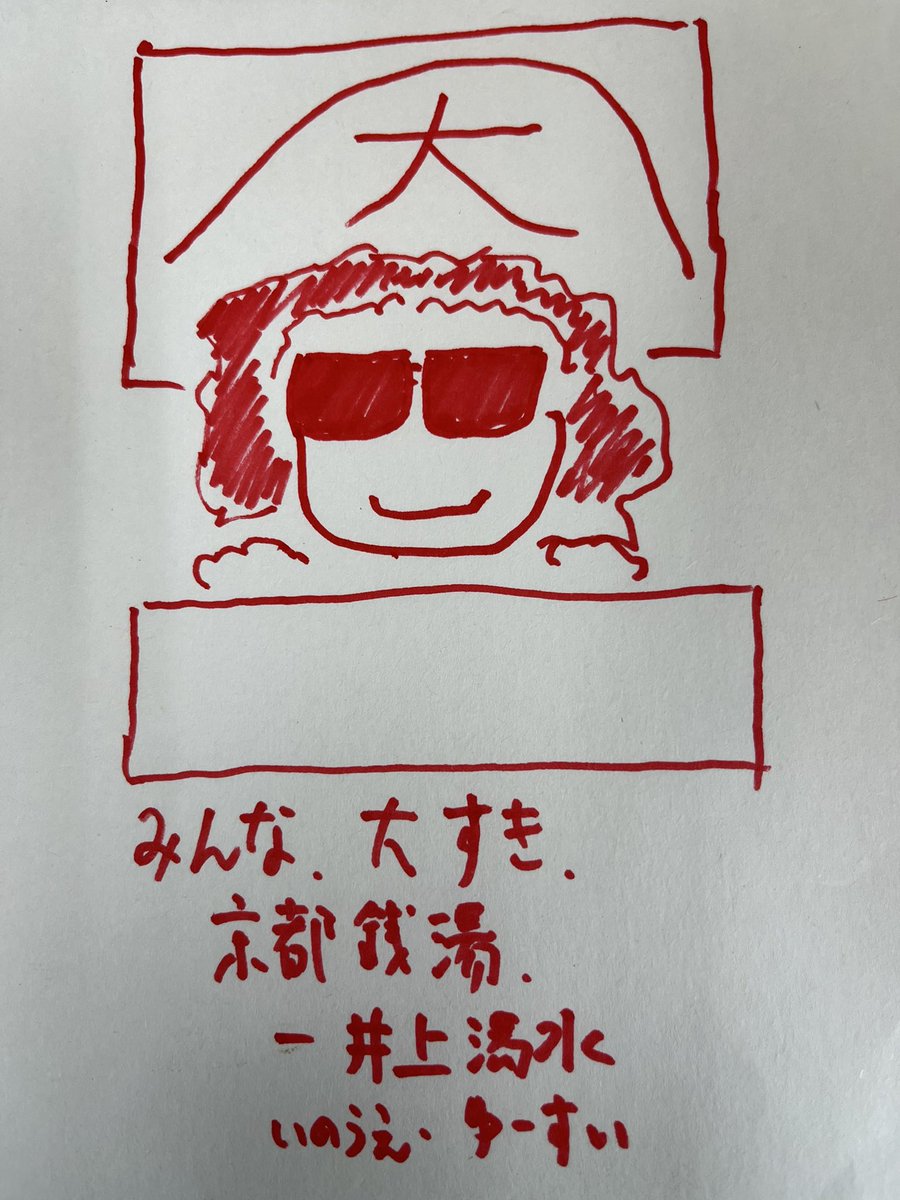 大
みんな、大すき、
京都銭湯、
ー井上湯水
いのうえ・ゆーすい